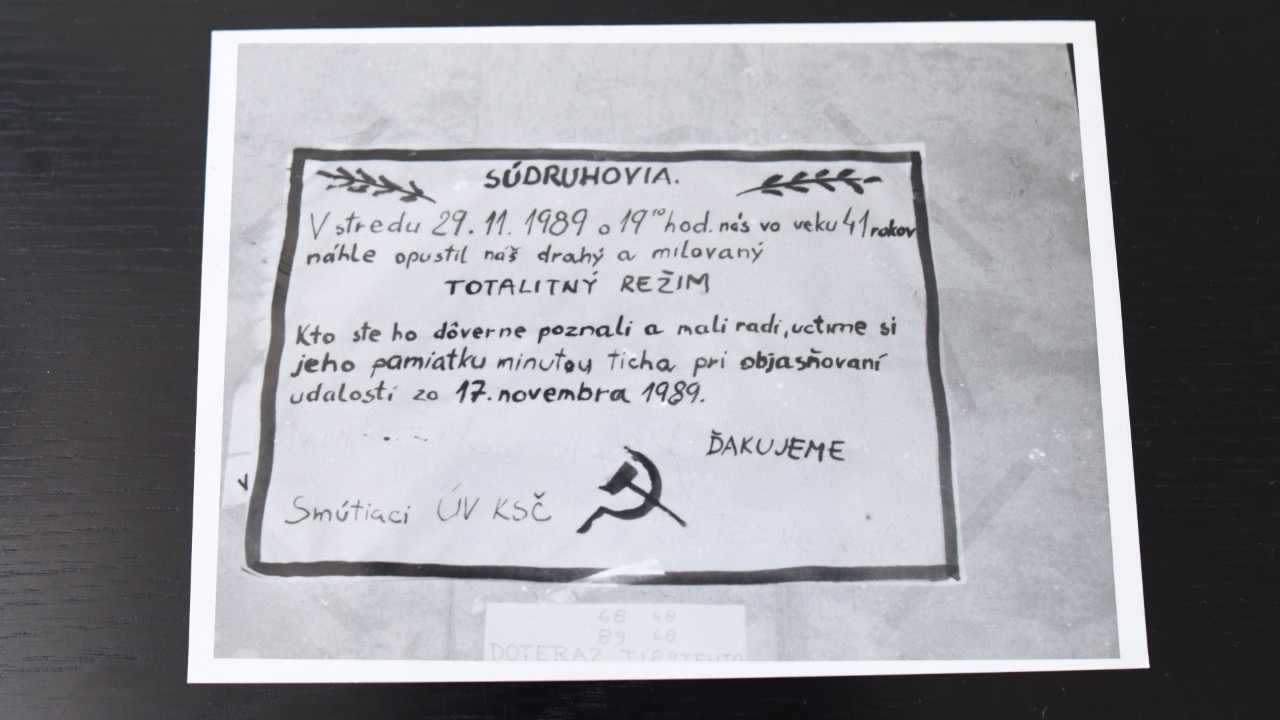 SÚDRUHOVIA.
V stredu 29. 11. 1989 o 19¹⁰ hod. nás vo veku 41 rokov
náhle opustil náš drahý a milovaný
TOTALITNÝ REŽIM
Kto ste ho dôverne poznali a mali radi, uctime si
jeho pamiatku minutou ticha pri objasňovaní
udalostí zo 17. novembra 1989.
ĎAKUJEME
Smútiaci ÚV KSČ
68 48
89 68
DOTERAZ